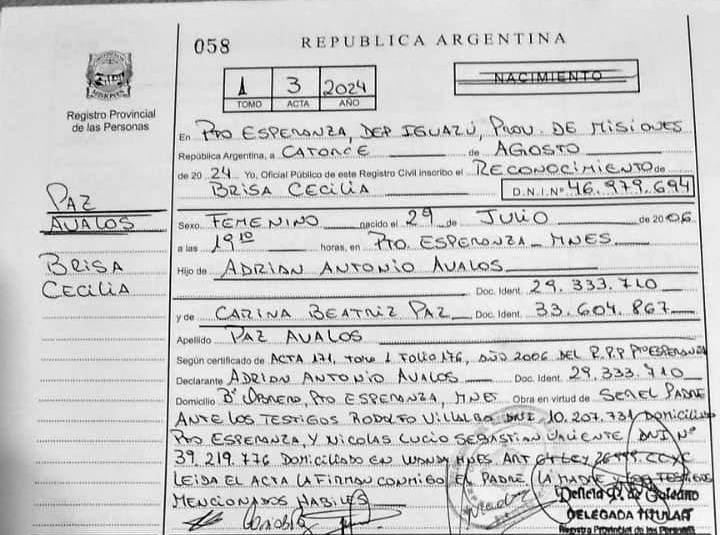 058
REPUBLICA ARGENTINA
Registro Provincial
de las Personas
1 3 2024
TOMO ACTA AÑO
NACIMIENTO
En PTO ESPERANZA, DEP IGUAZÚ, PROV. DE MISIONES
República Argentina, a CATORCE de AGOSTO
de 20 24 Yo, Oficial Público de este Registro Civil inscribo el RECONOCIMIENTO de
BRISA CECILIA D.N.I.Nº 46.979.694
PAZ
AVALOS
BRISA
CECILIA
Sexo FEMENINO nacido el 29 de JULIO de 2006
a las 19 10 horas, en PTO. ESPERANZA - MNES
Hijo de ADRIAN ANTONIO AVALOS
Doc. Ident. 29.333.710
y de CARINA BEATRIZ PAZ Doc. Ident. 33.604.867
Apellido PAZ AVALOS
Según certificado de ACTA 171, TOMO 1 FOLIO 176, AÑO 2006 DEL R.P.P PTO ESPERANZA
Declarante ADRIAN ANTONIO AVALOS Doc. Ident. 29.333.710
Domicilio Bº OBRERO, PTO ESPERANZA, MNES Obra en virtud de SER EL PADRE
ANTE LOS TESTIGOS RODOLFO VILLALBA DNI 10.207.731 DOMICILIADO
PTO ESPERANZA, Y NICOLAS LUCIO SEBASTIAN VALIENTE DNI Nº
39.219.776 DOMICILIADO EN WANDA MNES. ART 64 LEY CCYC
LEIDA EL ACTA LA FIRMAN CONMIGO EL PADRE, LA MADRE Y LOS TESTIGOS
MENCIONADOS HABILES
DELEGADA TITULAR
Registro Provincial de las Personas